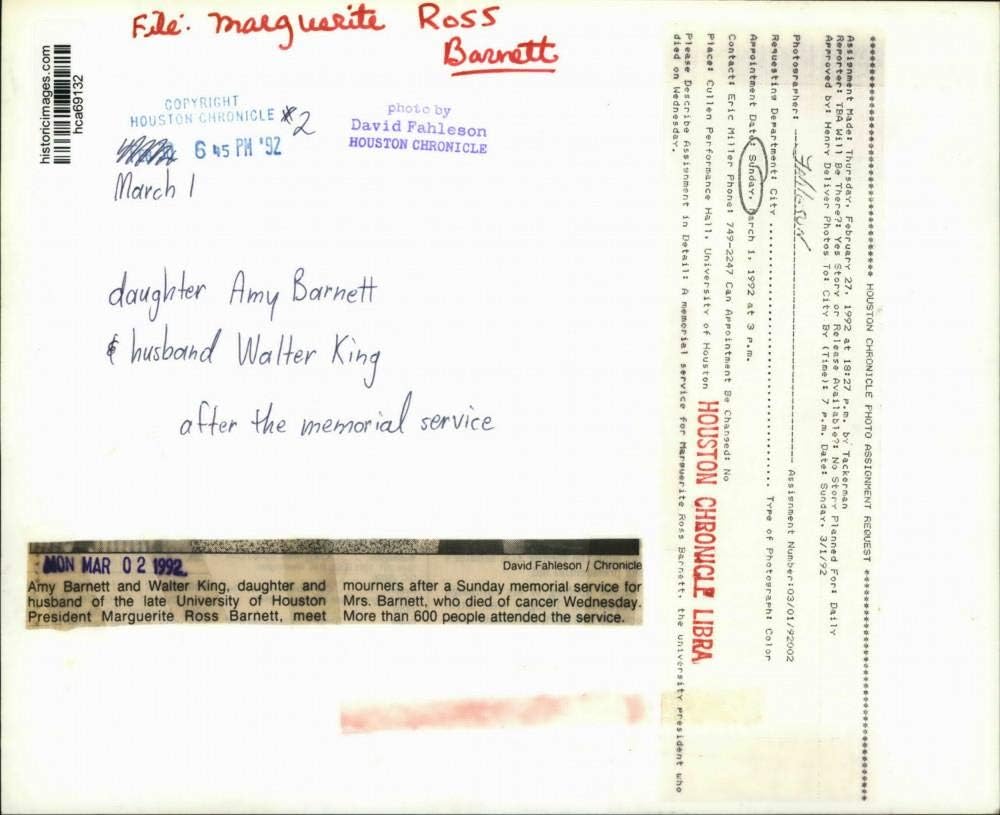 File: Marguerite Ross
Barnett
historicimages.com
hca69132
COPYRIGHT
HOUSTON CHRONICLE
#2
6 45 PM '92
March 1
photo by
David Fahleson
HOUSTON CHRONICLE
daughter Amy Barnett
& husband Walter King
after the memorial service
MON MAR 02 1992
David Fahleson / Chronicle
Amy Barnett and Walter King, daughter and
husband of the late University of Houston
President Marguerite Ross Barnett, meet
mourners after a Sunday memorial service for
Mrs. Barnett, who died of cancer Wednesday.
More than 600 people attended the service.
HOUSTON CHRONICLE PHOTO ASSIGNMENT REQUEST
Assignment Made: Thursday, February 27, 1992 at 18:27 p.m. by Tackerman
Reporter: TBA Will Be There?: Yes Story or Release Available?: No Story Planned For: Daily
Approved by: Henry Deliver Photos To: City By (Time): 7 p.m. Date: Sunday, 3/1/92
Photographer: Fahleson Assignment Number:03/01/92002
Requesting Department: City Type of Photograph: Color
Appointment Date: Sunday, March 1, 1992 at 3 p.m.
Contact: Eric Miller Phone: 749-2247 Can Appointment Be Changed: No
Place: Cullen Performance Hall, University of Houston
HOUSTON CHRONICLE LIBRA
Please Describe Assignment in Detail: A memorial service for Marguerite Ross Barnett, the university president who
died on Wednesday.